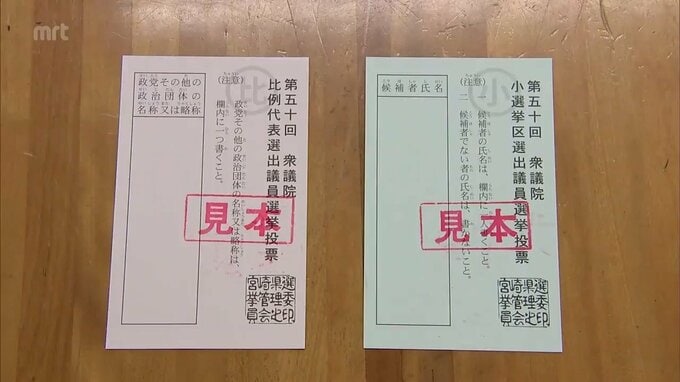 mrt
第五十回 衆議院
比例代表選出議員選挙投票
比
(注意)
政党その他の政治団体の名称又は略称は、
欄内に一つ書くこと。
政党その他の
政治団体の
名称又は略称
見本
宮崎県選挙管理委員会之印
第五十回 衆議院
小選挙区選出議員選挙投票
小
(注意)
一 候補者の氏名は、欄内に一人書くこと。
二 候補者でない者の氏名は、書かないこと。
候補者氏名
見本
宮崎県選挙管理委員会之印